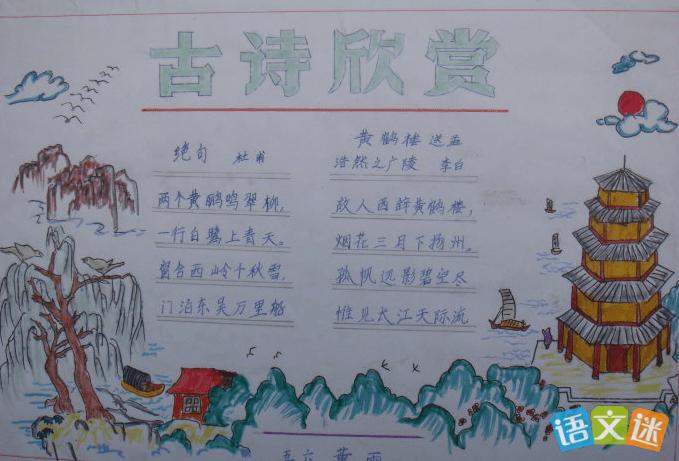 古诗欣赏
绝句 杜甫
两个黄鹂鸣翠柳,
一行白鹭上青天。
窗含西岭千秋雪,
门泊东吴万里船
黄鹤楼送孟
浩然之广陵 李白
故人西辞黄鹤楼,
烟花三月下扬州。
孤帆远影碧空尽
惟见长江天际流
语文迷